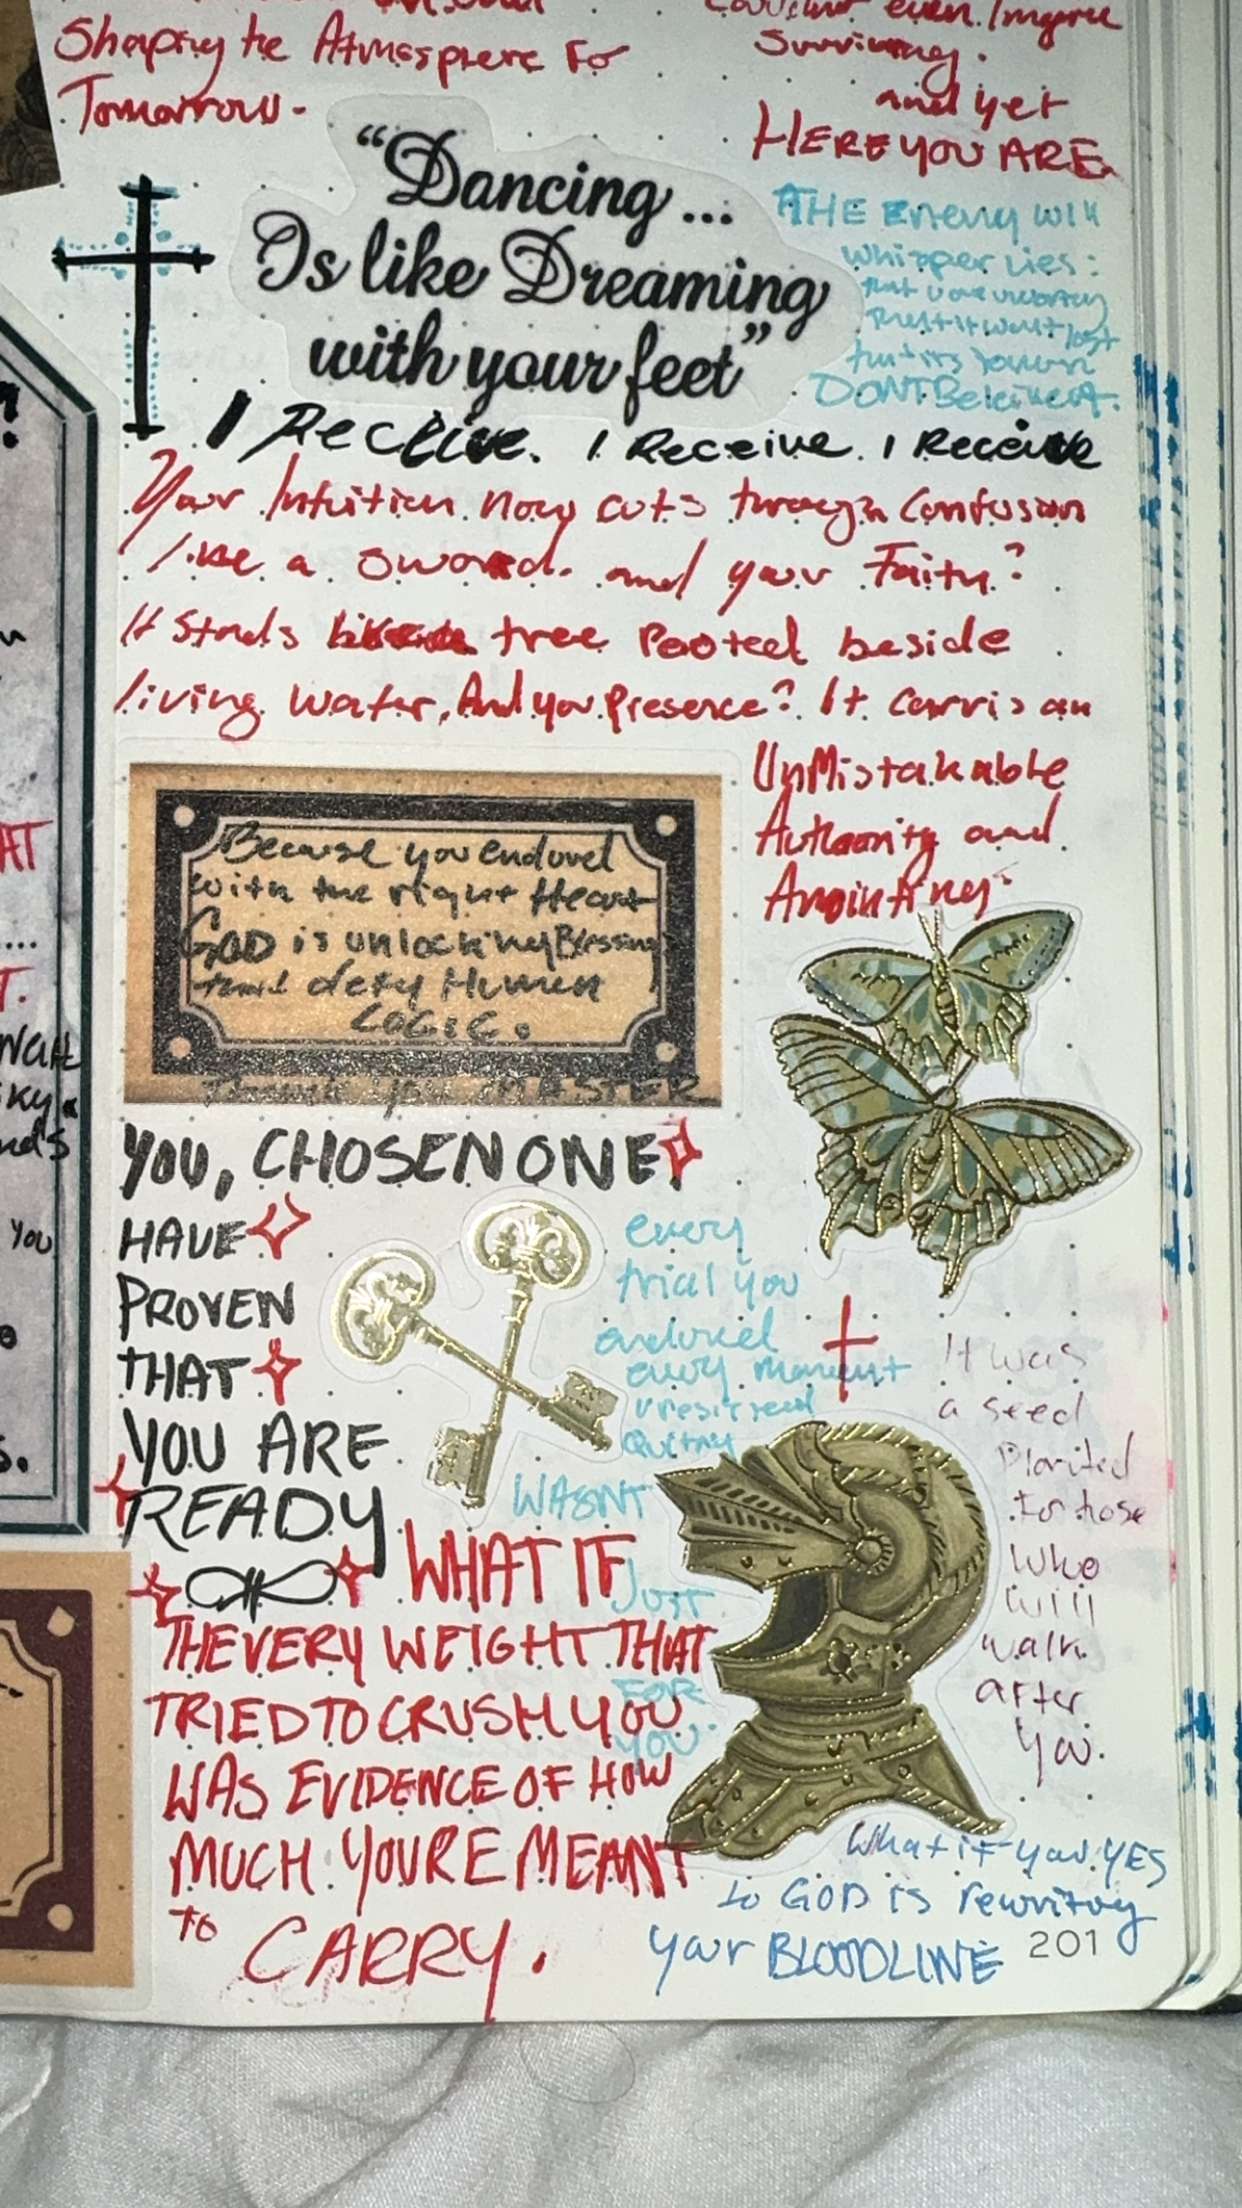 Shaping the Atmosphere For
Tomorrow.
even Imagine
Surviving.
and yet
HERE YOU ARE.
"Dancing...
Is like Dreaming
with your feet"
THE Enemy will
whisper Lies:
that
that it wont last
DONT Believe it.
I Receive. I Receive. I Receive
Your Intuition now cuts through Confusion
like a sword. and your Faith?
It Stands tree Rooted beside
living water, And your Presence? It carries an
UnMistakable
Authority and
Anointing.
Because you endured
with the right Heart
GOD is unlocking Blessings
that defy Human
LOGIC.
Thank You MASTER
YOU, CHOSEN ONE
HAVE
PROVEN
THAT
YOU ARE
READY
every
trial you
endured
every moment
u resisted
Quitting
WASNT
JUST
FOR
YOU.
It was
a seed
Planted
for those
who
will
walk
after
You.
WHAT IF
THE VERY WEIGHT THAT
TRIED TO CRUSH YOU
WAS EVIDENCE OF HOW
MUCH YOURE MEANT
TO
CARRY.
What if your YES
to GOD is rewriting
your BLOODLINE
201
AT
...
T.
Wait
sky
nds
You
s.